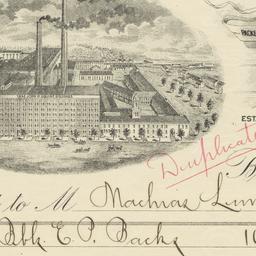 PACKE
EST
Duplicate
to M Machias Lum
Bbls. E. P. Backs 10